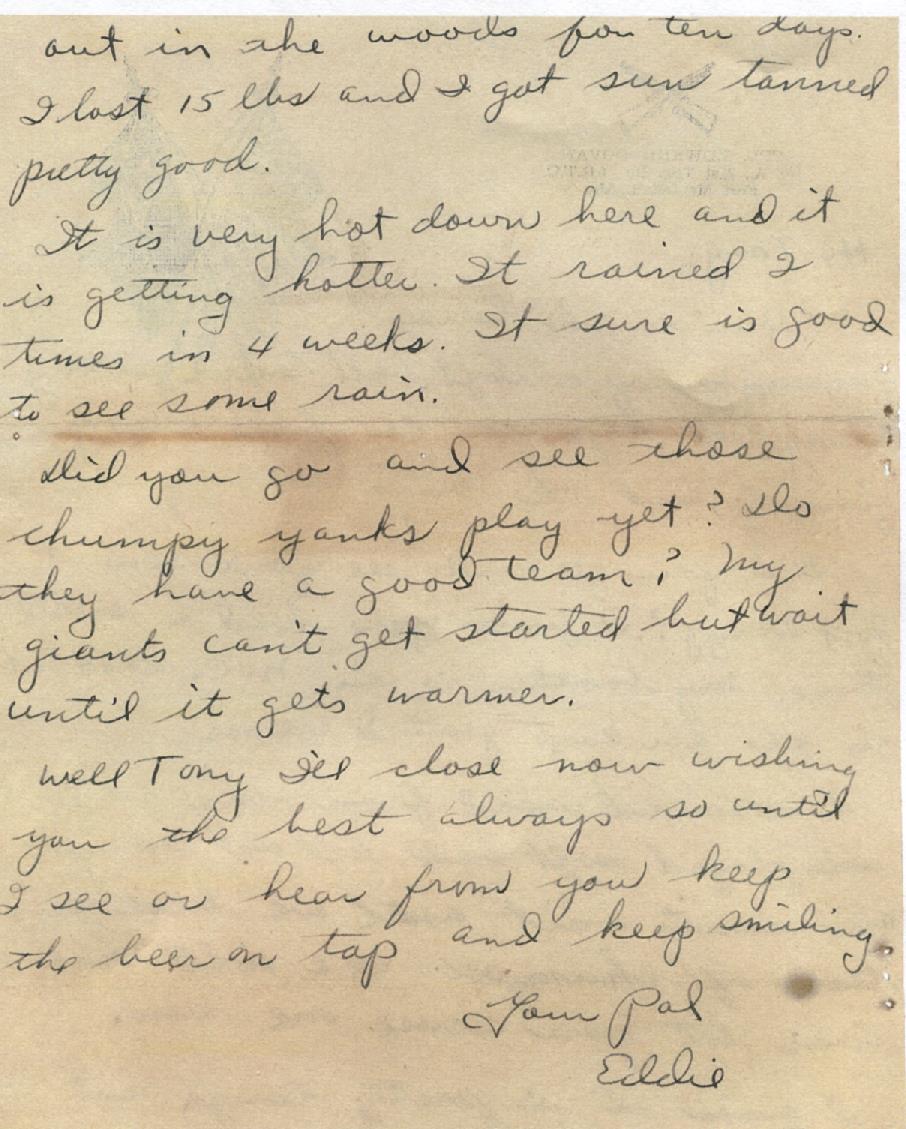 out in the woods for ten days.
I lost 15 lbs and I got sun tanned
pretty good.
It is very hot down here and it
is getting hotter. It rained 2
times in 4 weeks. It sure is good
to see some rain.
Did you go and see those
chumpy yanks play yet? Do
they have a good team? My
giants can't get started but wait
until it gets warmer.
Well Tony I'll close now wishing
you the best always so until
I see or hear from you keep
the beer on tap and keep smiling.
Your Pal
Eddie